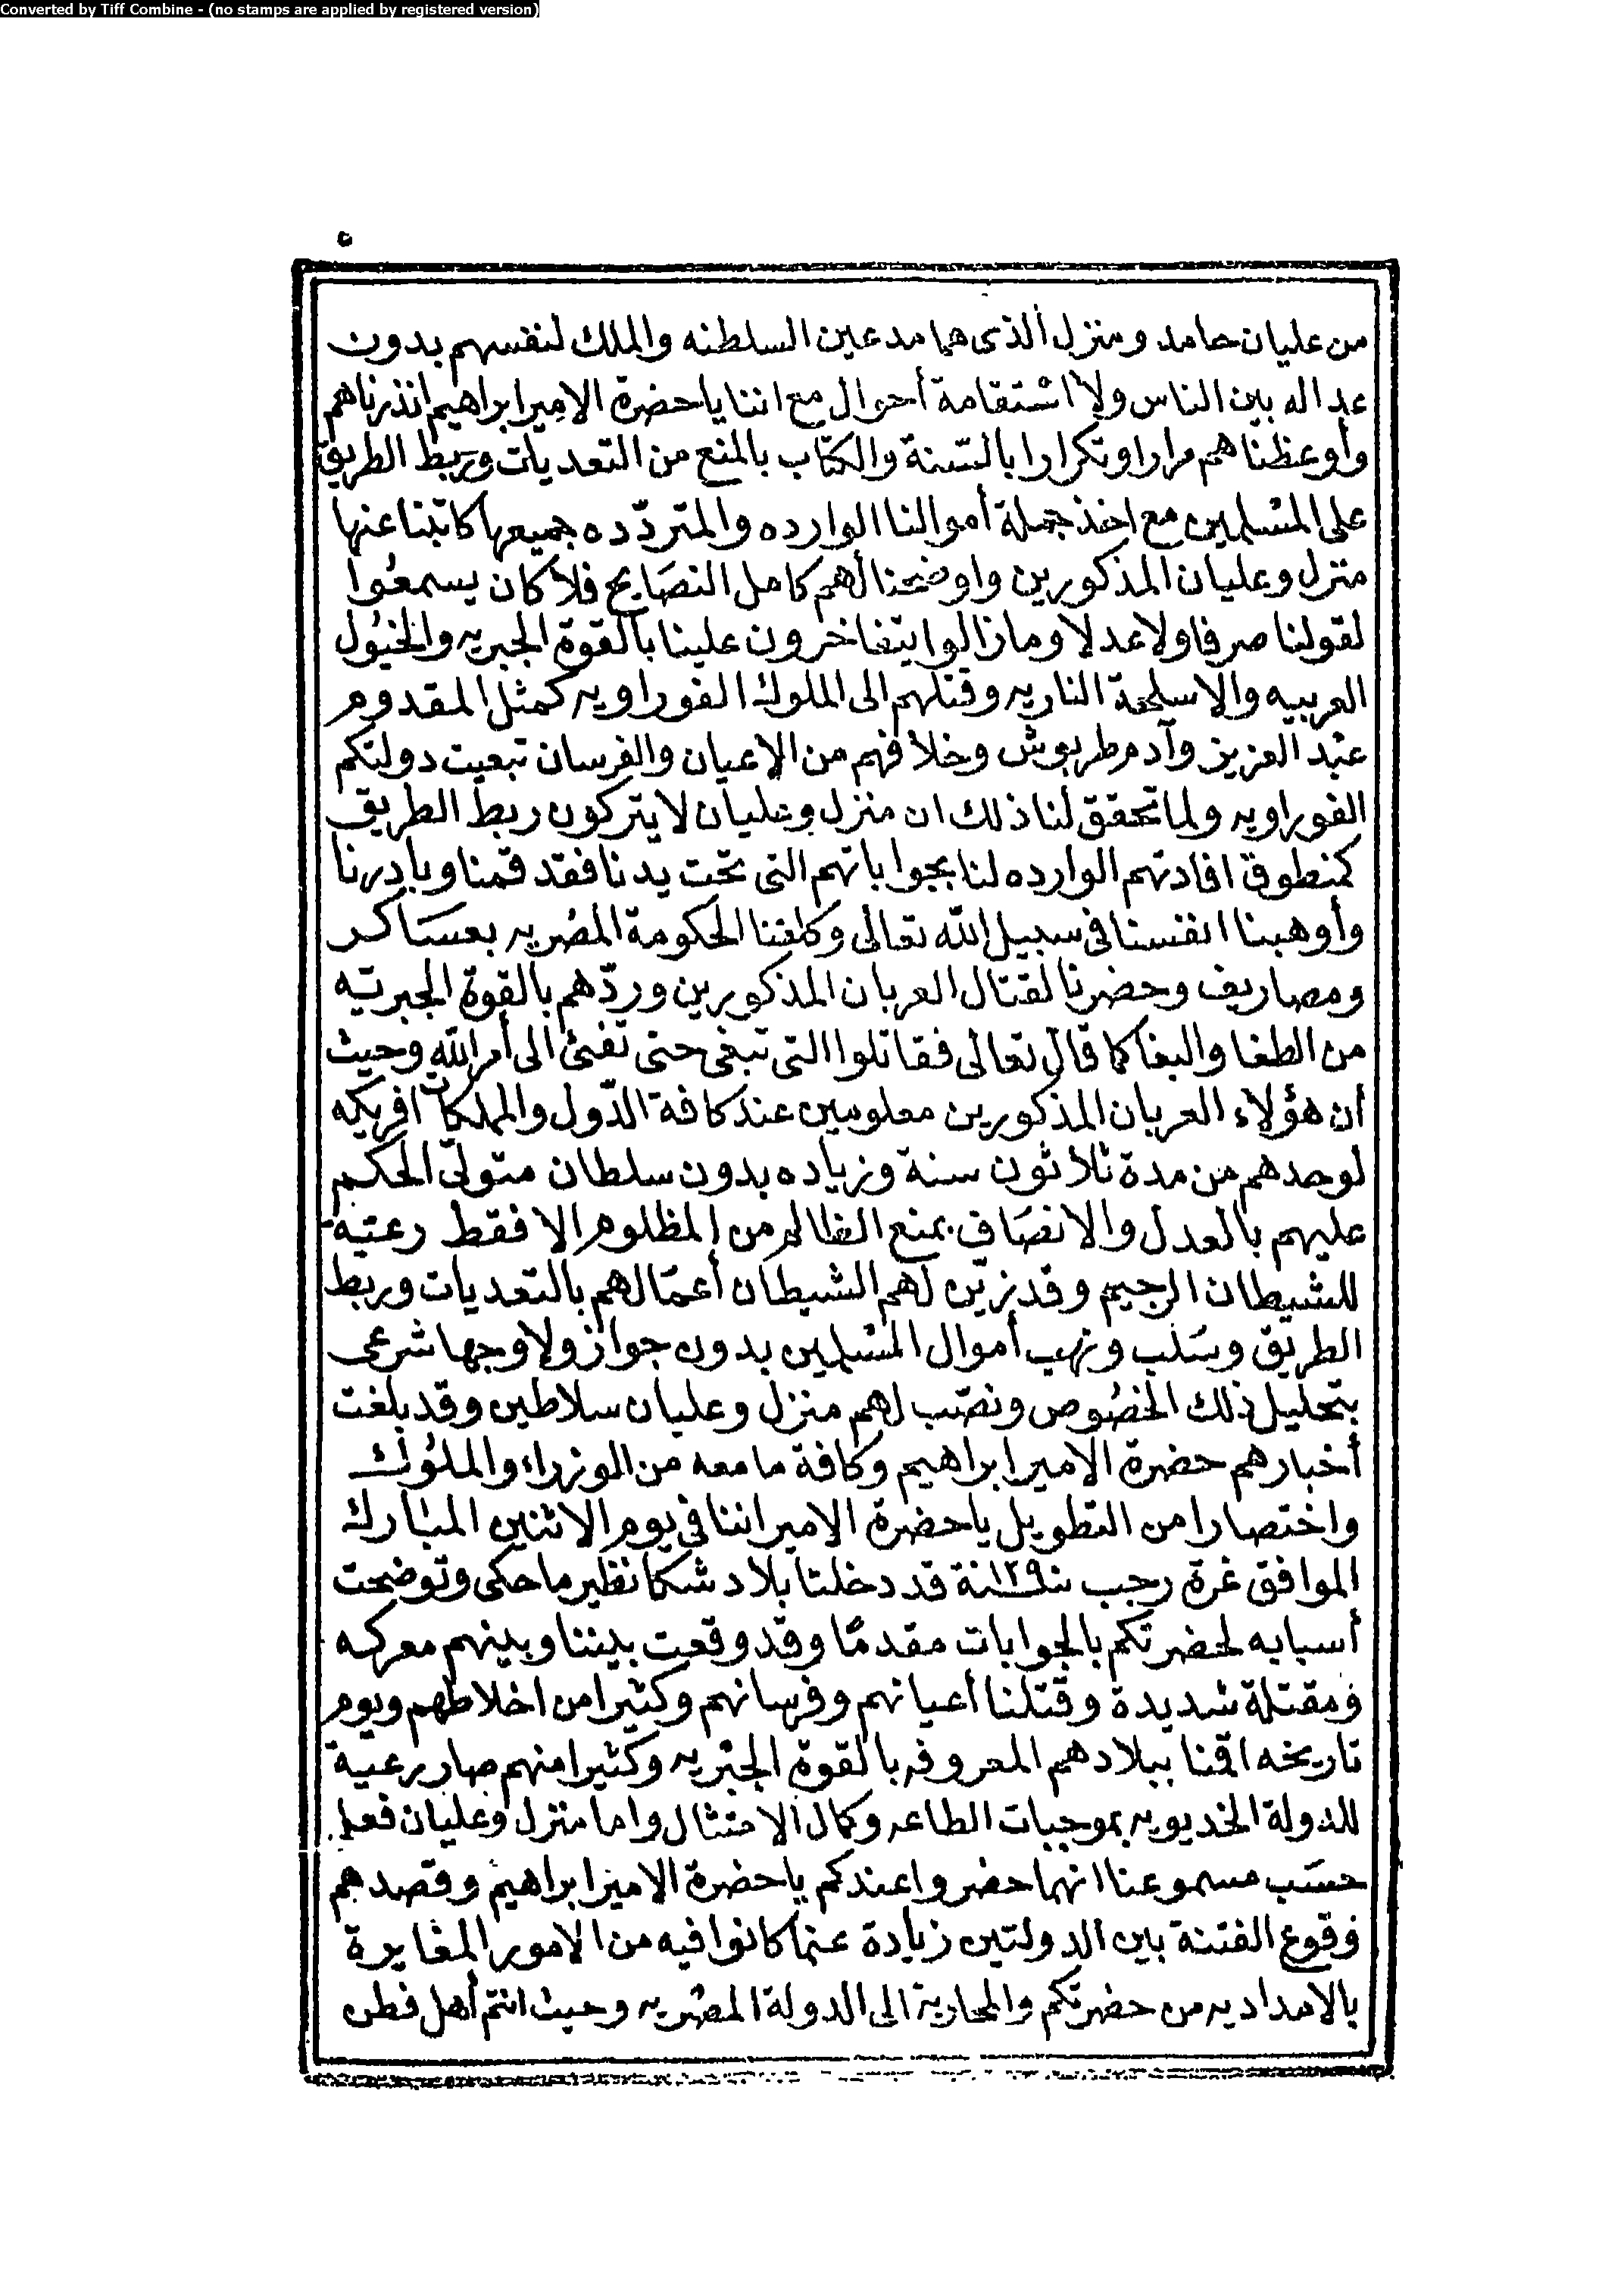 Converted by Tiff Combine - (no stamps are applied by registered version)
٥
من عليان حامد ومنزل ألذى هما مدعين السلطنه والملك لنفسهم بدون
عداله بين الناس ولا اشتقامة أحوال مع اننا ياحضرة الامير ابراهيم انذرناهم
وأوعظناهم مرارا وتكرارا بالسّنة والكتاب بالمنع من التعديات وربط الطريق
على المسلمين مع اخذ جملة أموالنا الوارده والمتردّده جميعها كاتبنا عنها
منزل وعليان المذكورين واوضحنا لهم كامل النصَايح فلا كان يسمعُوا
لقولنا صرفا ولا عدلا وما زالوا يتفاخرون علينا بالقوة الجبريه والخيُول
العربيه والاسلحة الناريه وقتلهم الى الملوك الفوراويه كمثل المقدوم
عبْد العزيز وآدم طربوش وخلافهم من الاعيان والفرسان تبعيت دولتكم
الفوراويه ولما تحقق لنا ذلك ان منزل وعليان لا يتركون ربط الطريق
كمنطوق افادتهم الوارده لنا بجواباتهم التى تحت يدنا فقد قمنا وبادرنا
وأوهبنا انفسنا فى سبيل الله تعالى وكلفنا الحكومة المصْريه بعسَاكر
ومصاريف وحضرنا لقتال العربان المذكورين وردّهم بالقوة الجبريّه
من الطغا والبغا كما قال تعالى فقاتلوا التى تبغى حتى تفئ الى أمر الله وحيث
أن هؤلاء العربان المذكورين معلومين عند كافة الدّول والمملكات افريكه
لوحدهم من مدة ثلاثون سنة وزياده بدون سلطان متولّى الحكم
عليهم بالعدل والانصَاف بمنع الظالم من المظلوم الا فقط رعيّة
للشيطان الرجيم وقد زيّن لهم الشيطان أعمَالهم بالتعديات وربط
الطريق وسَلب ونهب أموال المسْلمين بدون جواز ولا وجها شرعى
بتحليل ذلك الخصُوص ونصّب لهم منزل وعليان سلاطين وقد بلغت
أخبارهم حضرة الامير ابراهيم وكافة ما معه من الوزراء والملُوك
واختصارا من التطويل ياحضرة الامير اننا فى يوم الاثنين المبَارك
الموافق غرة رجب سنة ١٢٩٠ قد دخلنا بلاد شكا نظير ما حكى وتوضحت
أسبابه لحضرتكم بالجوابات مقدمًا وقد وقعت بيننا وبينهم معركه
ومقتلة شديدة وقتلنا أعيانهم وفرسانهم وكثيرا من اخلاطهم ويوم
تاريخه اقمنا ببلادهم المعروفه بالقوة الجبْريه وكثيرا منهم صار رعية
للدولة الخديويه بموجبات الطاعه وكمال الامتثال واما منزل وعليان فعلى
حسَب مسموعنا انهما حضروا عندكم ياحضرة الامير ابراهيم وقصدهم
وقوع الفتنة بين الدولتين زيادة عنما كانوا فيه من الامور المغايرة
بالامداديه من حضرتكم والمحاربة الى الدولة المصْريه وحيث انتم أهل فطن